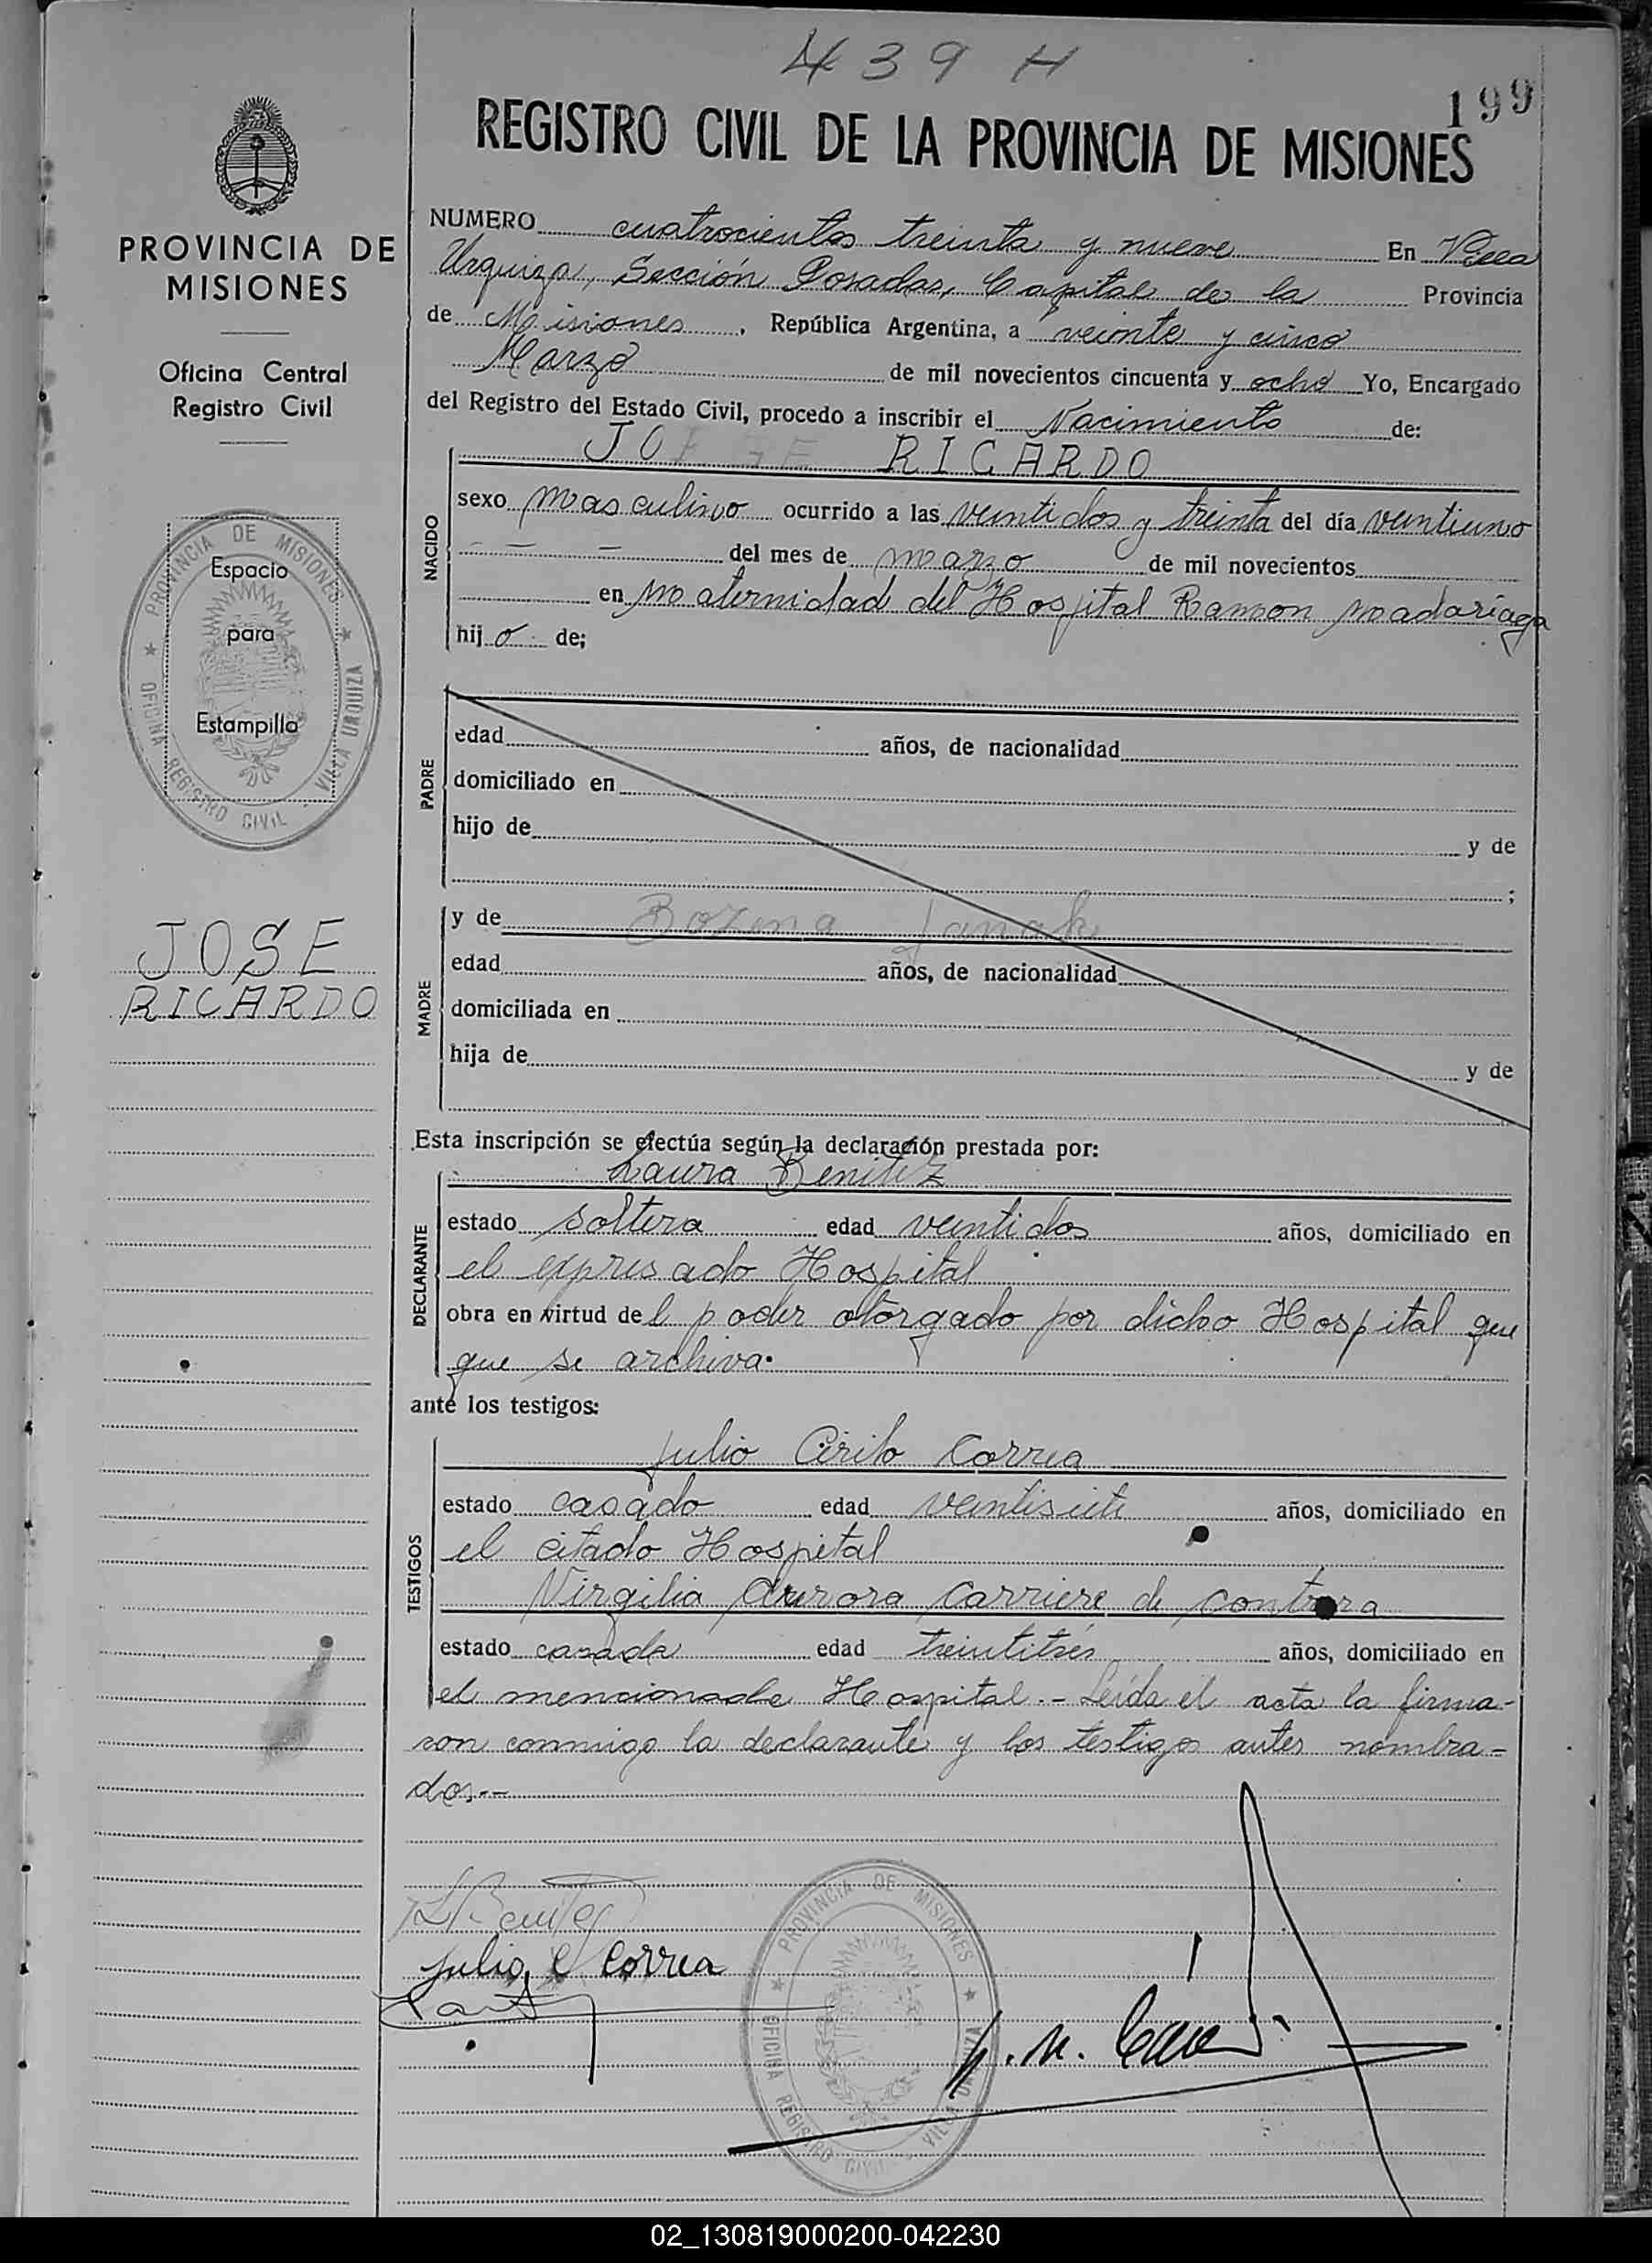 439 H
199
REGISTRO CIVIL DE LA PROVINCIA DE MISIONES
PROVINCIA DE
MISIONES
Oficina Central
Registro Civil
PROVINCIA DE MISIONES
OFICINA REGISTRO CIVIL VILLA URQUIZA
Espacio
para
Estampilla
JOSE
RICARDO
NUMERO cuatrocientos treinta y nueve En Villa
Urquiza, Sección Posadas, Capital de la Provincia
de Misiones, República Argentina, a veinte y cinco
Marzo de mil novecientos cincuenta y ocho Yo, Encargado
del Registro del Estado Civil, procedo a inscribir el Nacimiento de:
RICARDO
NACIDO
sexo masculino ocurrido a las veintidos y treinta del día veintiuno
- - - del mes de marzo de mil novecientos
en Maternidad del Hospital Ramon Madariaga
hijo de;
PADRE
edad años, de nacionalidad
domiciliado en
hijo de y de
;
MADRE
y de Bozena Janak
edad años, de nacionalidad
domiciliada en
hija de y de
Esta inscripción se efectúa según la declaración prestada por:
Laura Benitez
DECLARANTE
estado soltera edad veintidos años, domiciliado en
el expresado Hospital
obra en virtud del poder otorgado por dicho Hospital que
que se archiva.
ante los testigos:
Julio Cirilo Correa
TESTIGOS
estado casado edad veintisiete años, domiciliado en
el citado Hospital
Virgilia Aurora Carriere de Contrera
estado casada edad treintitrés años, domiciliado en
el mencionado Hospital.- Leída el acta la firma-
ron conmigo la declarante y los testigos antes nombra-
dos.--
L Benitez
Julio C Correa
PROVINCIA DE MISIONES
OFICINA REGISTRO CIVIL VILLA URQUIZA
02_130819000200-042230